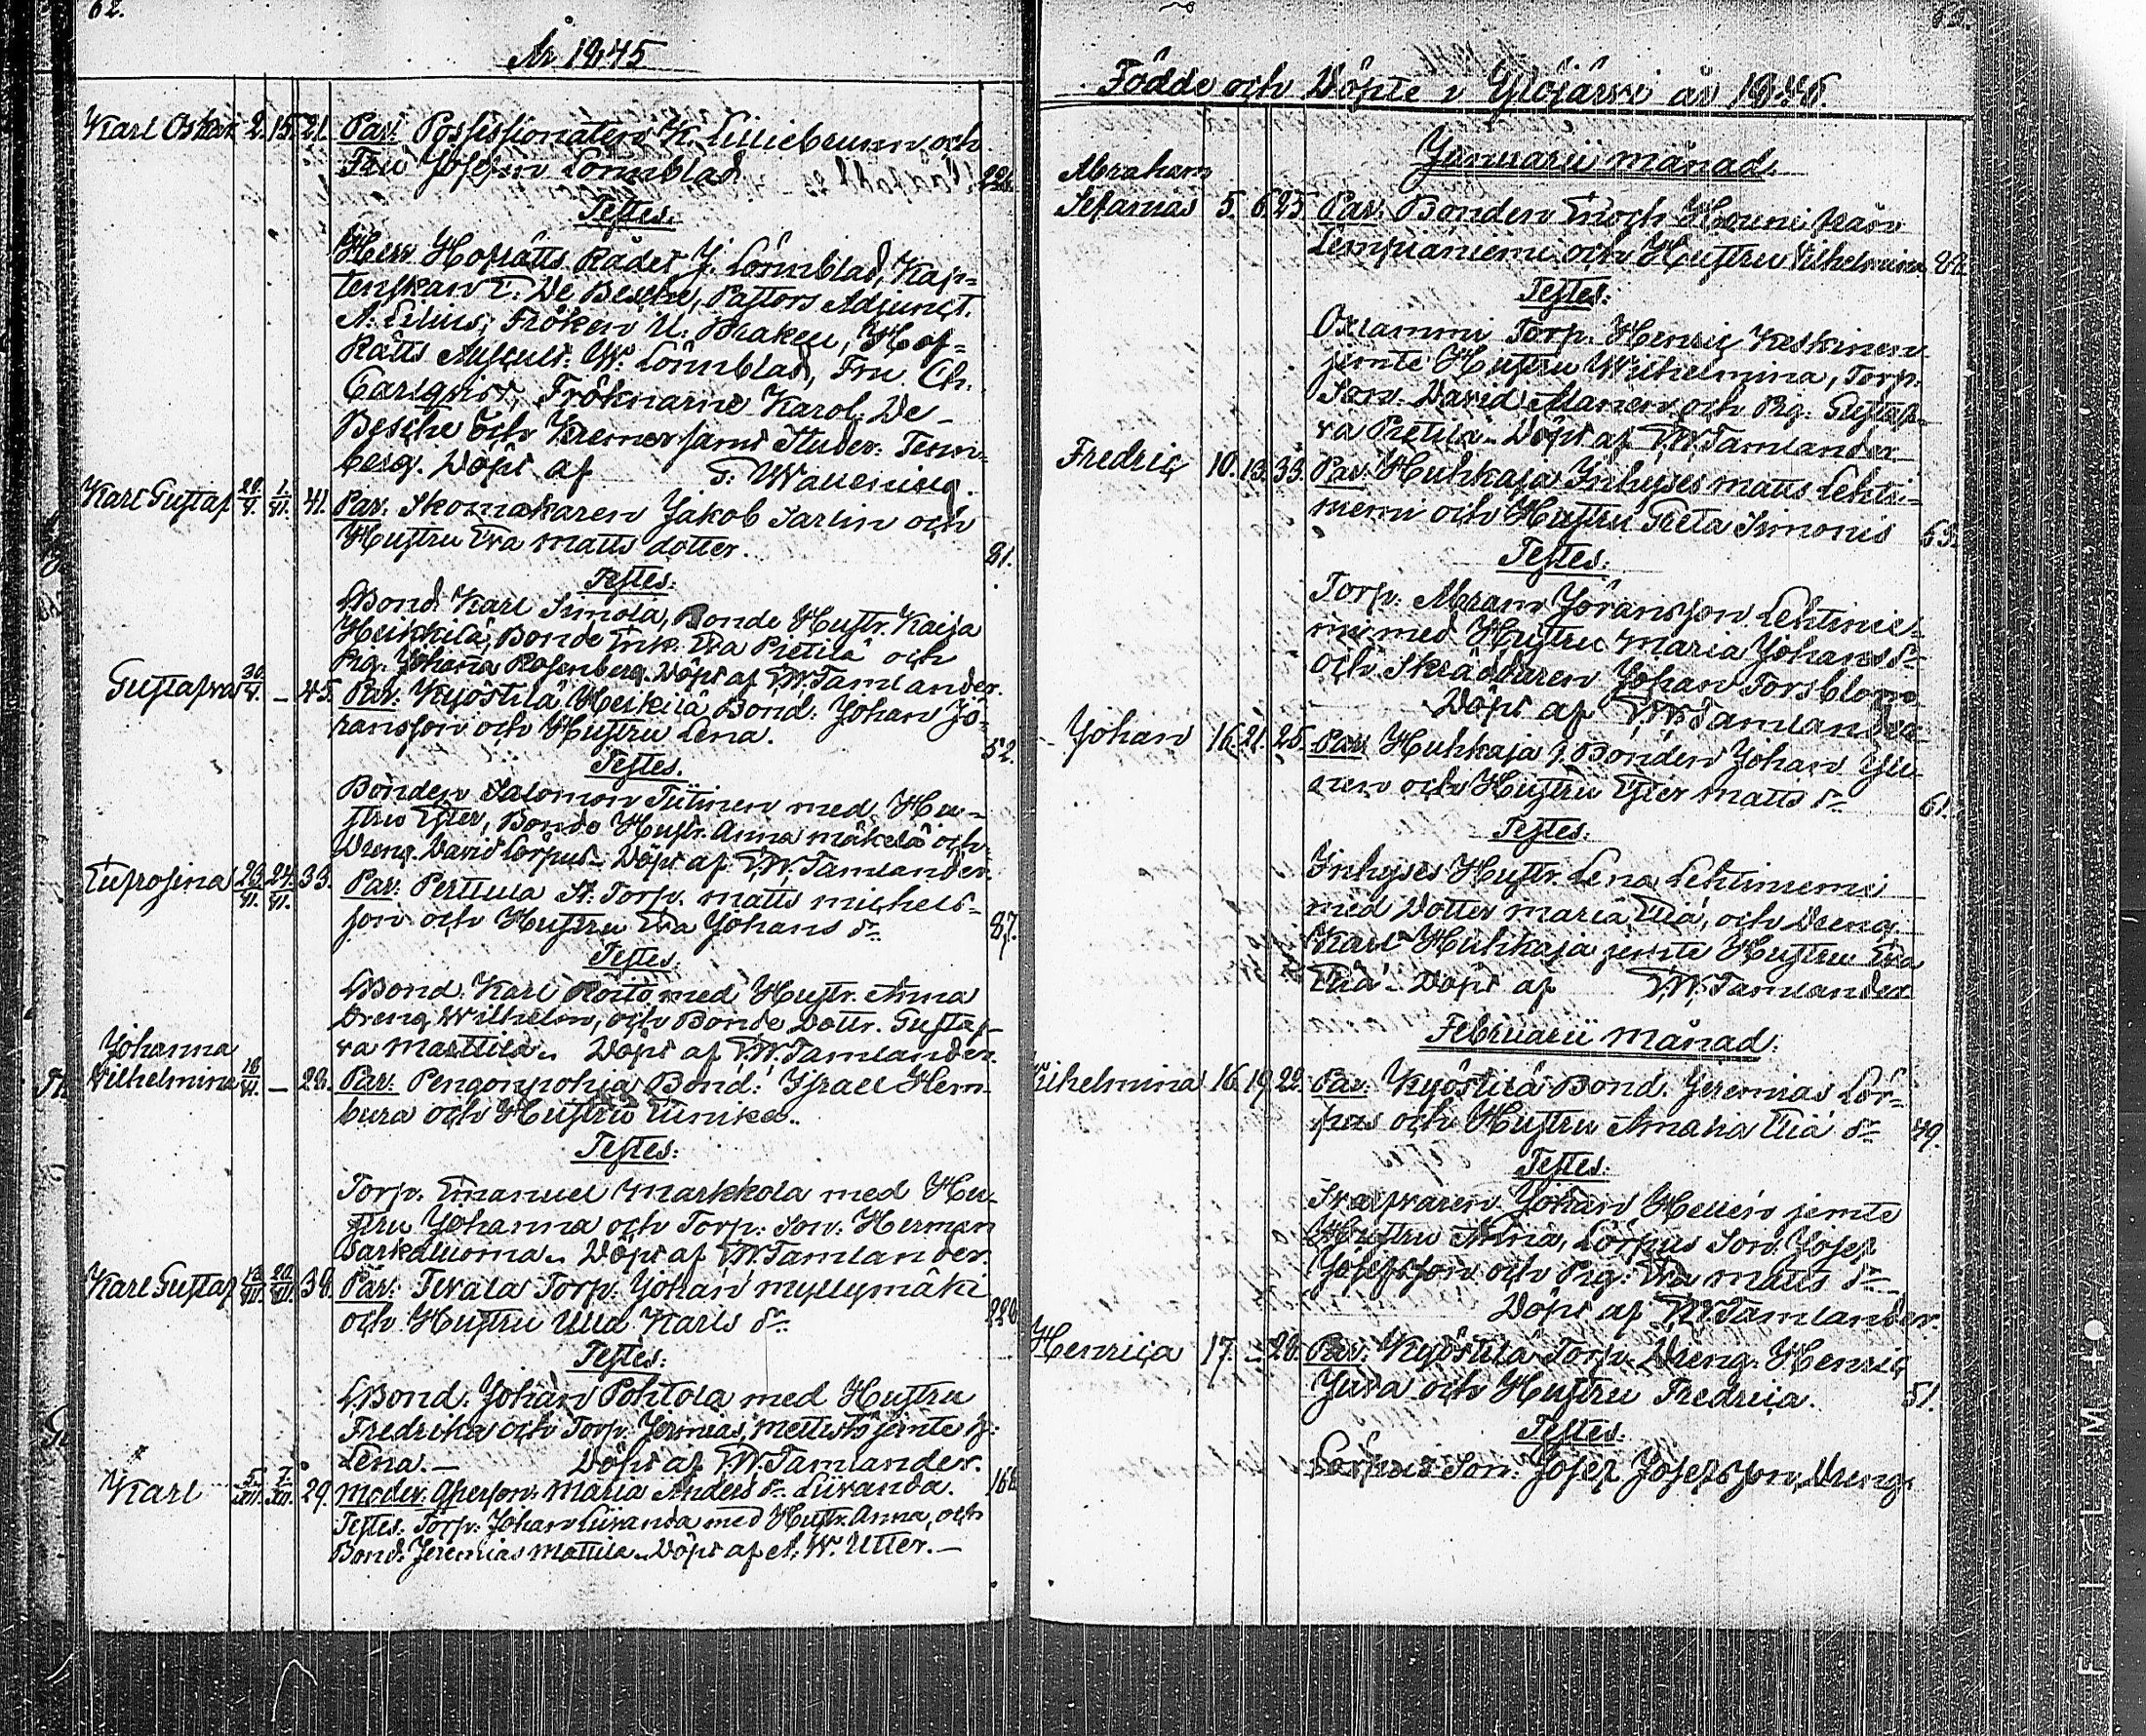 62.
År 1845
Karl Oskar 2. 15. 21. Par. Possessionaten K. Lilliebrunn och
Fru Josefina Lönnblad 226.
Testes.
Herr Hofrätts Rådet J. Lönnblad, Kap-
tenskan E. De Besche, Pastors Adjunct.
A. Lilius, Fröken U. Braken, Hof-
Rätts Auscult. W. Lönnblad, Fru Ch.
Carlqvist, Fröknarne Karol. De
Besche och Kremer samt Studer. Tenn-
berg. Döpt af F. Wallening.
Karl Gustaf 41. Par. Skomakaren Jakob Sarlin och
Hustru Eva Matts dotter. 81.
Testes.
Bond. Karl Simola, Bonde Hustr. Kaisa
Heikkilä, Bonde Enk. Eva Pietilä och
Pig. Johaña Rosenberg. Döpt af E.W. Tamlander.
Gustafva 30 — 45. Par. Kyöstilä Heikilä Bond. Johan Jö-
ransson och Hustru Lena. 52.
Testes.
Bonden Salomon Tiitinen med Hu-
stru Ester, Bonde Hustr. Anna Mäkelä och
Dreng David Lörpus. Döpt af E.W. Tamlander.
Eufrosina 23 24 33. Par. Perttula St. Torp. Matts Michels-
son och Hustru Eva Johans dr 87.
Testes.
Bond. Karl Roito med Hustr. Anna
Dreng Wilhelm, och Bonde Dottr. Gustaf-
va Masttila. Döpt af E.W. Tamlander.
Johanna
Vilhelmina 18 — 28. Par. Pengonpohja Bond. Israel Hem-
bura och Hustru Eunika.
Testes.
Torp. Emanuel Markkola med Hu-
stru Johanna och Torp. Son. Herman
Sarkaluoma. Döpt af E.W. Tamlander.
Karl Gustaf 20 38. Par. Tevala Torp. Johan Myllymäki
och Hustru Ulla Karls dr 220
Testes.
Bond. Johan Pohtola med Hustru
Fredrika och Torp. Jeremias Mettistö jemte H.
Lena. — Döpt af E.W. Tamlander.
Karl 5/XII. 7/XII. 29. Moder. Qperson. Maria Anders dr Liuranda. 168
Testes. Torp. Johan Liuranda med Hustr. Anna, och
Bond. Jeremias Mattila. Döpt af A. W. Utter. —
Födde och Döpte i Ylöjärvi år 1846.
Januarii månad.
Abraham
Sefanias 5. 6. 25. Par. Bonden Enoch
Lempianiemi och Hustru Vilhelmina 82
Testes.
Oxlammi Torp. Henric Keskinen
jemte Hustru Wilhelmina, Torp.
Son. David Alanen och Pig. Gustaf-
va Pietilä. Döpt af E.W. Tamlander
Fredric 10. 13. 33. Par. Huhkaja Inhyses Matts Lehti-
niemi och Hustru Greta Simonis 65.
Testes.
Torp. Abram Jöransson Lehtinie-
mi med Hustru Maria Johans dr
och Skräddaren Johan Forsblom
Döpt af E.W. Tamlander
Johan 16. 21. 25. Par. Huhkaja Bonden Johan Yli-
nen och Hustru Ester Matts dr 61.
Testes.
Inhyses Hustr. Lena Lehtiniemi
med Dotter Maria Eliä, och Dreng
Karl Huhkaja jemte Hustru Eva
Eliä. Döpt af E.W. Tamlander
Februarii månad.
Vilhelmina 16. 19. 22. Par. Kyöstilä Bond. Jeremias Lör-
pus och Hustru Amalia Eliä dr 49.
Testes.
Svarfvaren Johan Hellén jemte
Hustru Añna, Lörpus Son. Josef
Josefsson och Pig. Eva Matts dr
Döpt af E.W. Tamlander.
Henrica 17. — 28. Par. Kyöstilä Torp. Dreng. Henric
Juva och Hustru Fredrica. 51.
Testes.
Lörpus Son. Josef Josefsson, Dreng.
FILM